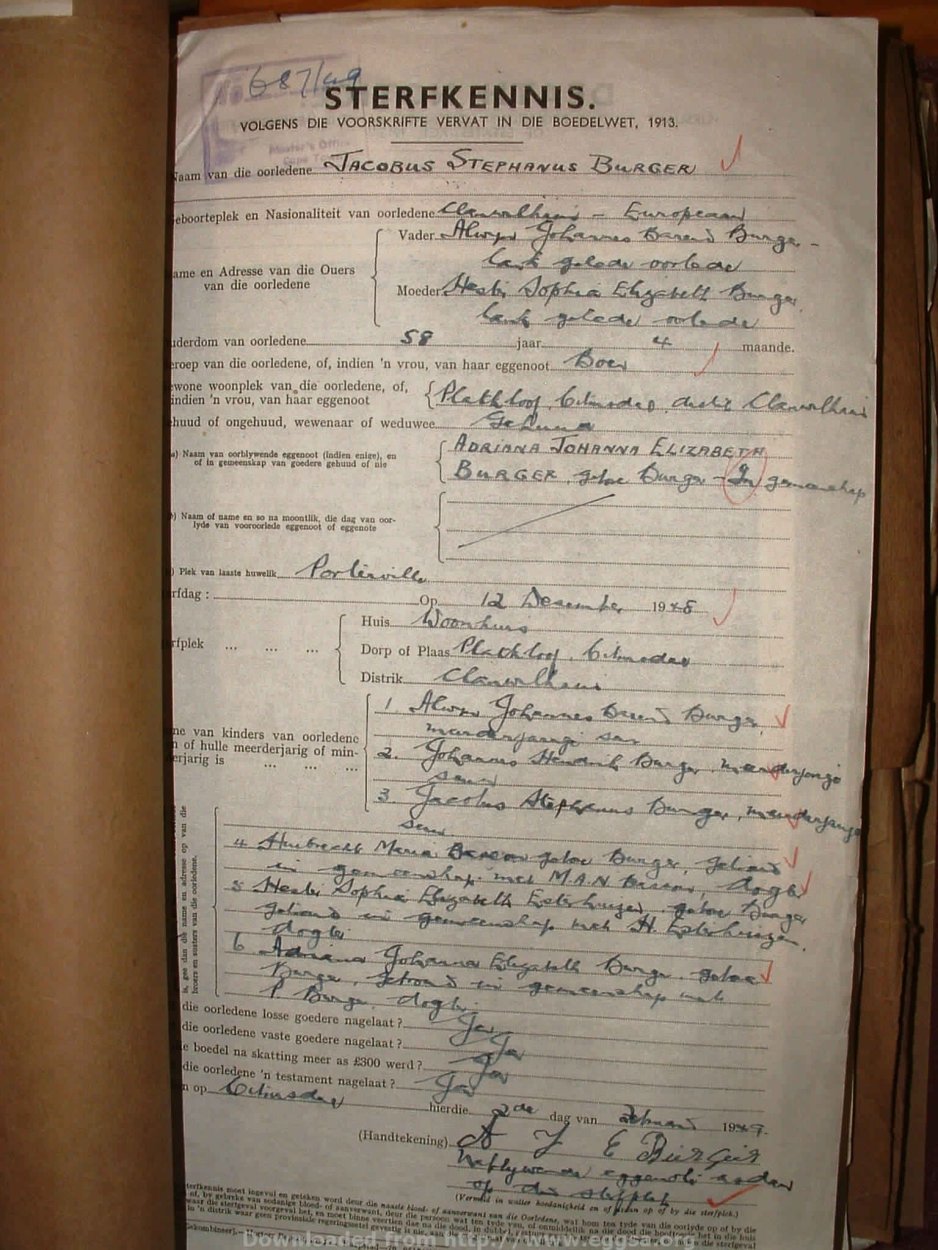 687/49
STERFKENNIS.
VOLGENS DIE VOORSKRIFTE VERVAT IN DIE BOEDELWET, 1913.
Master's Office
Cape T
Naam van die oorledene JACOBUS STEPHANUS BURGER
eboorteplek en Nasionaliteit van oorledene Clanwilliam - European
Vader Alwyn Johannes Barend Burger -
lank gelede oorlede
ame en Adresse van die Ouers
van die oorledene
Moeder Hester Sophia Elizabeth Burger
lank gelede oorlede
uderdom van oorledene 58 jaar 4 maande.
eroep van die oorledene, of, indien 'n vrou, van haar eggenoot Boer
ewone woonplek van die oorledene, of,
indien 'n vrou, van haar eggenoot
Platkloof, Citrusdal, distrik Clanwilliam
ehuud of ongehuud, wewenaar of weduwee Gehuud
a) Naam van oorblywende eggenoot (indien enige), en
of in gemeenskap van goedere gehuud of nie
ADRIANA JOHANNA ELIZABETH
BURGER, gebore Burger - In gemeenskap
b) Naam of name en so na moontlik, die dag van oor-
lyde van vooroorlede eggenoot of eggenote
) Plek van laaste huwelik Porterville
rfdag : Op 12 Desember 1948
rfplek ... ... ...
Huis Woonhuis
Dorp of Plaas Platkloof, Citrusdal
Distrik Clanwilliam
me van kinders van oorledene
n of hulle meerderjarig of min-
erjarig is ... ... ...
1 Alwyn Johannes Barend Burger,
meerderjarige seun
2. Johannes Hendrik Burger, meerderjarige
seun
3. Jacobus Stephanus Burger, meerderjarige
seun.
is, gee dan die name en adresse op van die
broers en susters van die oorledene.
4 Huibrecht Maria Basson gebore Burger, getroud
in gemeenskap met M.A.N Basson, dogter
5 Hester Sophia Elizabeth Esterhuizen, gebore Burger
getroud in gemeenskap met H. Esterhuizen,
dogter
6 Adriana Johanna Elizabeth Burger, gebore
Burger, getroud in gemeenskap met
P. Burger, dogter
die oorledene losse goedere nagelaat ? Ja
die oorledene vaste goedere nagelaat ? Ja
e boedel na skatting meer as £300 werd ? Ja
die oorledene 'n testament nagelaat ? Ja
n op Citrusdal hierdie 2de dag van Februarie 1949.
(Handtekening) A J E Burger
Nablywende eggenote
op die sterfplek
(Vermeld in watter hoedanigheid en of teenwoordig op by die sterfplek.)
Downloaded from http://www.eggsa.org